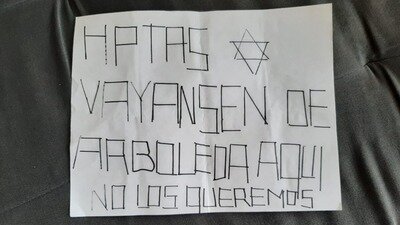 HPTAS
VAYANSEN DE
ARBOLEDA AQUI
NO LOS QUEREMOS